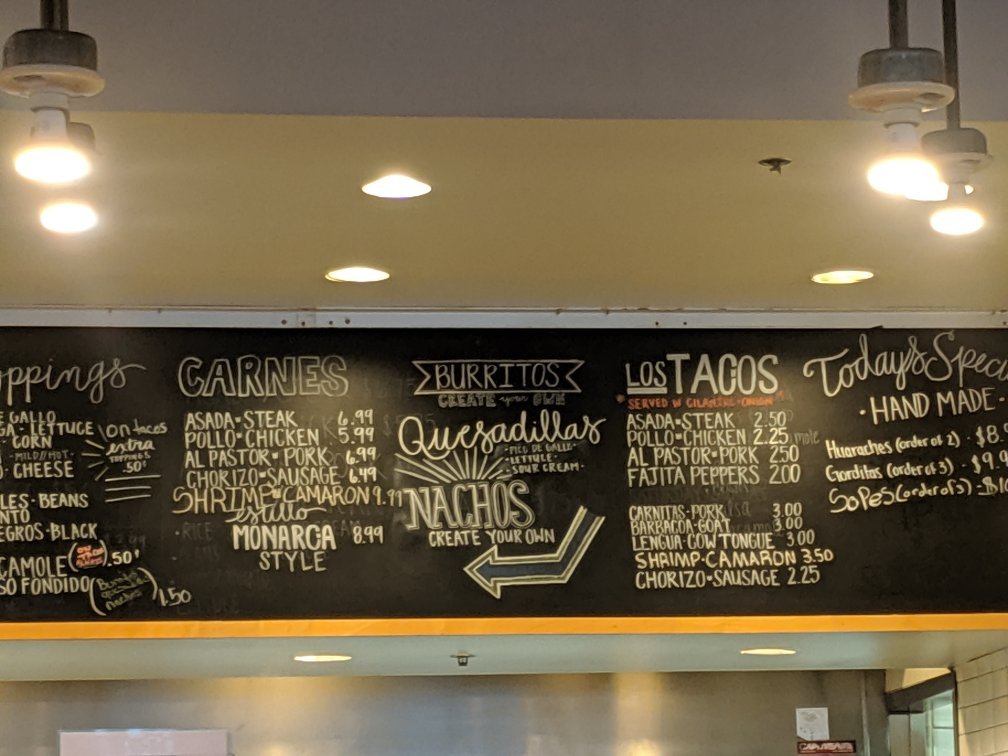 oppings
E GALLO
GA · LETTUCE
· CORN
· MILD/HOT ·
CHEESE
LES · BEANS
NTO
EGROS · BLACK
CAMOLE .50¢
SO FONDIDO 1.50
on tacos
extra
TOPPINGS
.50¢
CARNES
ASADA · STEAK 6.99
POLLO · CHICKEN 5.99
AL PASTOR · PORK 6.99
CHORIZO · SAUSAGE 6.49
SHRIMP · CAMARON 9.99
estillo
MONARCA 8.99
STYLE
BURRITOS
CREATE your OWN
Quesadillas
· PICO DE GALLO ·
· LETTUCE ·
· SOUR CREAM ·
NACHOS
CREATE YOUR OWN
LOS TACOS
* SERVED W CILANTRO · ONION *
ASADA · STEAK 2.50
POLLO · CHICKEN 2.25
AL PASTOR · PORK 2.50
FAJITA PEPPERS 2.00
CARNITAS · PORK 3.00
BARBACOA · GOAT 3.00
LENGUA · COW TONGUE 3.00
SHRIMP · CAMARON 3.50
CHORIZO · SAUSAGE 2.25
Today's Speci
· HAND MADE ·
Huaraches (order of 2) - $8
Gorditas (order of 3) - $9.9
Sopes (order of 3) - $10